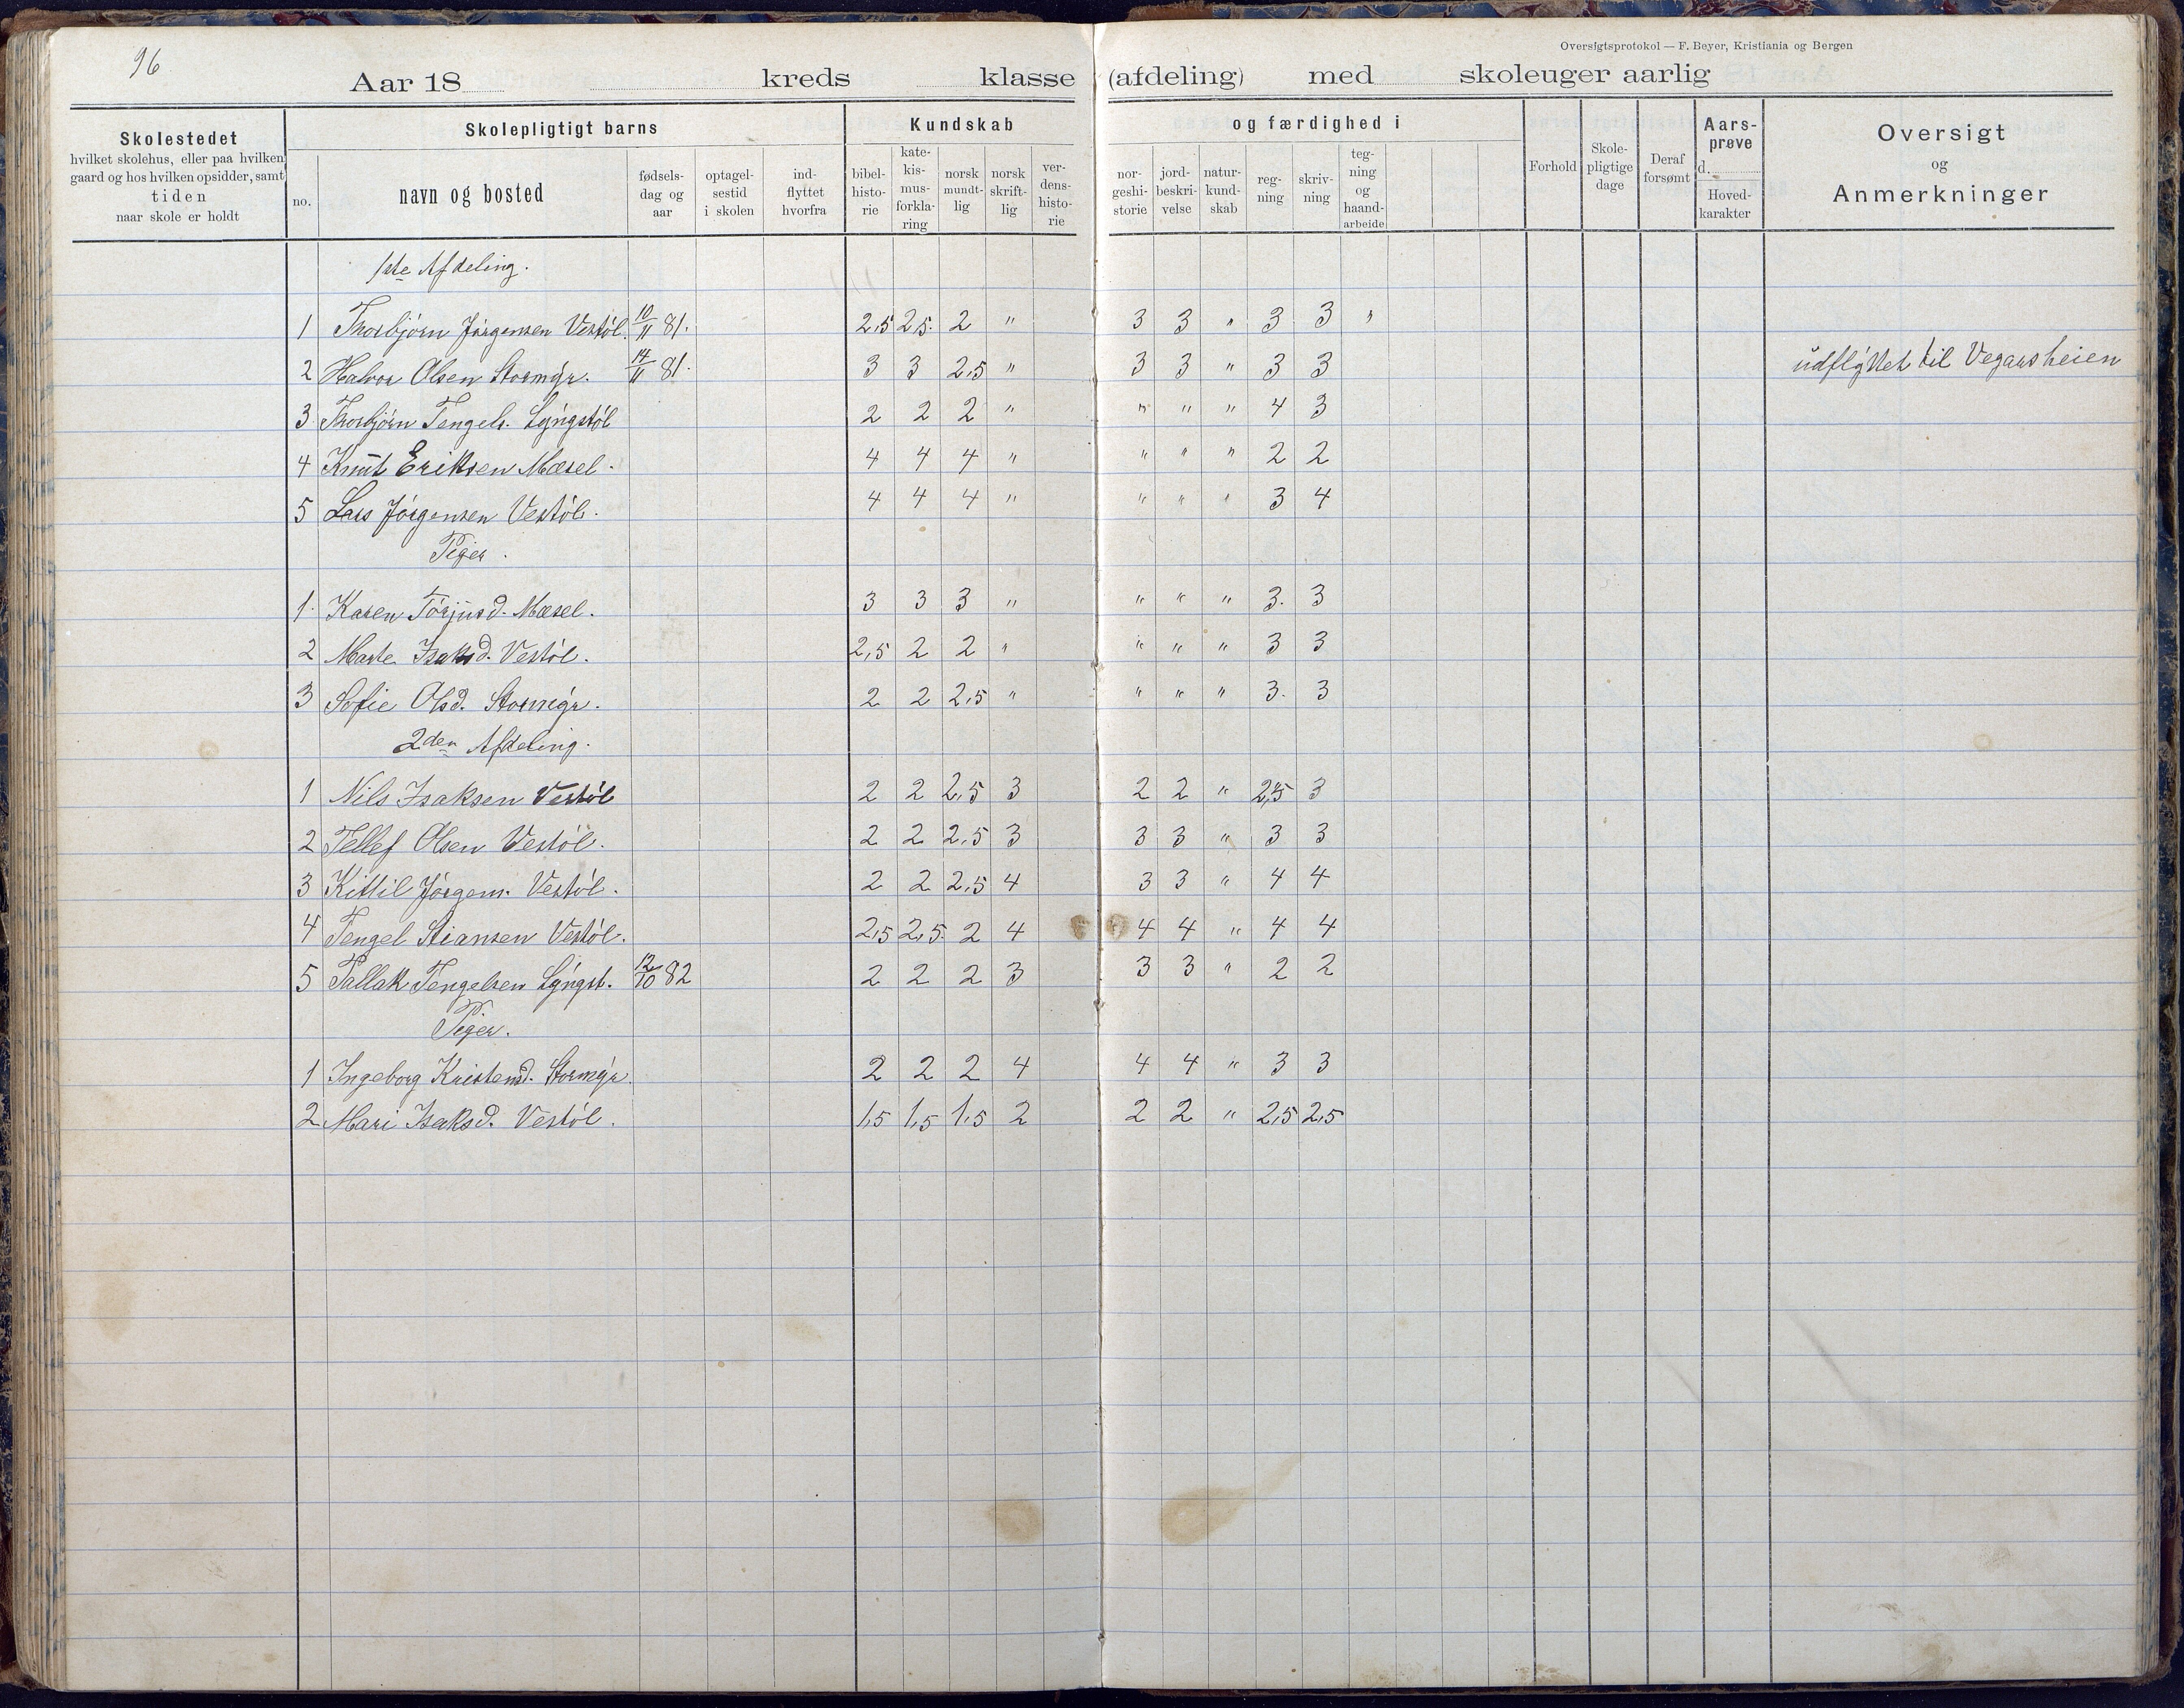 96
Oversigtsprotokol — F. Beyer, Kristiania og Bergen
Aar 18 kreds klasse (afdeling) med skoleuger aarlig
Skolestedet
hvilket skolehus, eller paa hvilken
gaard og hos hvilken opsidder, samt
tiden
naar skole er holdt
Skolepligtigt barns
no.
navn og bosted
fødsels-
dag og
aar
optagel-
sestid
i skolen
ind-
flyttet
hvorfra
Kundskab
bibel-
histo-
rie
kate-
kis-
mus-
forkla-
ring
norsk
mundt-
lig
norsk
skrift-
lig
ver-
dens-
histo-
rie
og færdighed i
nor-
geshi-
storie
jord-
beskri-
velse
natur-
kund-
skab
reg-
ning
skriv-
ning
teg-
ning
og
haand-
arbeide
Forhold
Skole-
pligtige
dage
Deraf
forsømt
Aars-
prøve
d.
Hoved-
karakter
Oversigt
og
Anmerkninger
1ste Afdeling.
1 Thorbjørn Jørgensen Vestøl. 10/11 81. 2,5 2,5. 2 " 3 3 " 3 3 "
2 Halvor Olsen Stormyr. 14/11 81. 3 3 2,5 " 3 3 " 3 3 udflyttet til Vegarsheien
3 Thorbjørn Tengels. Lyngstøl 2 2 2 " " " " 4 3
4 Knut Eriksen Mæsel. 4 4 4 " " " " 2 2
5 Lars Jørgensen Vestøl. 4 4 4 " " " " 3 4
Piger.
1. Karen Torjusd. Mæsel. 3 3 3 " " " " 3. 3
2 Marte Isaksd. Vestøl. 2,5 2 2 " " " " 3 3
3 Sofie Olsd. Stormyr. 2 2 2,5 " " " " 3. 3
2den Afdeling.
1 Nils Isaksen Vestøl 2 2 2,5 3 2 2 " 2,5 3
2 Tellef Olsen Vestøl. 2 2 2,5 3 3 3 " 3 3
3 Kittil Jørgens. Vestøl. 2 2 2,5 4 3 3 " 4 4
4 Tengel Stiansen Vestøl. 2,5 2,5. 2 4 4 4 " 4 4
5 Tallak Tengelsen Lyngst. 12/10 82 2 2 2 3 3 3 " 2 2
Piger.
1 Ingeborg Kristensd. Stormyr. 2 2 2 4 4 4 " 3 3
2 Mari Isaksd. Vestøl. 1,5 1,5 1,5 2 2 2 " 2,5 2,5